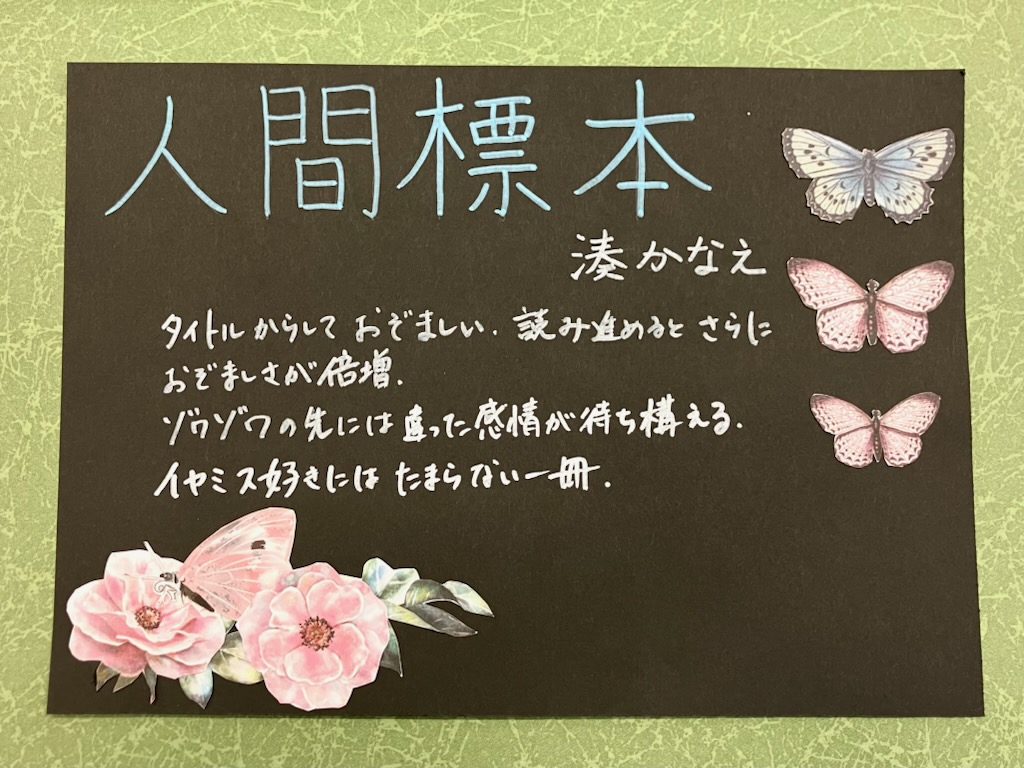 人間標本
湊かなえ
タイトルからして おぞましい. 読み進めると さらに
おぞましさが倍増.
ゾワゾワの先には 違った感情が待ち構える.
イヤミス好きには たまらない一冊.